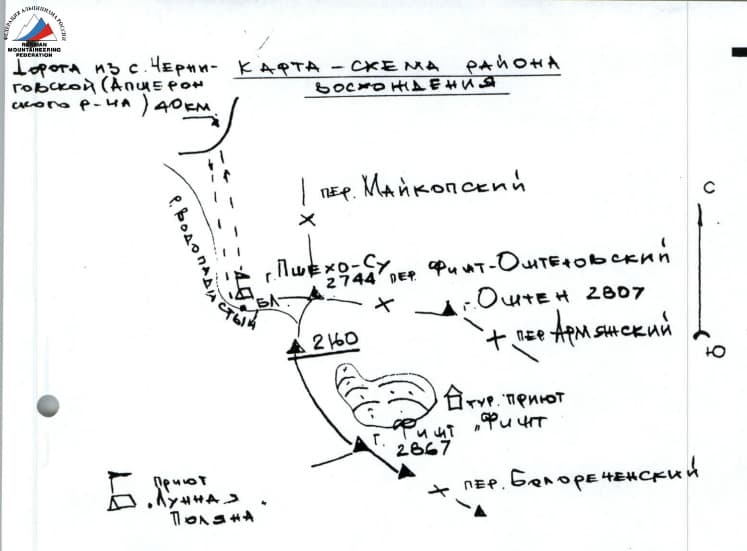 ФЕДЕРАЦИЯ АЛЬПИНИЗМА РОССИИ
RUSSIAN
MOUNTAINEERING
FEDERATION
Дорога из с. Черни-
говской (Апшерон
ского р-на) 40 км.
КАРТА – СХЕМА РАЙОНА
ВОСХОЖДЕНИЯ
пер. Майкопский
С
р. Водопадистый
г. Пшехо-Су
2744
пер. Фишт-Оштеновский
БЛ
г. Оштен 2807
пер Армянский
Ю
2160
тур. приют
"Фишт
г. Фишт
2867
пер. Белореченский
Приют
"Лунная
Поляна